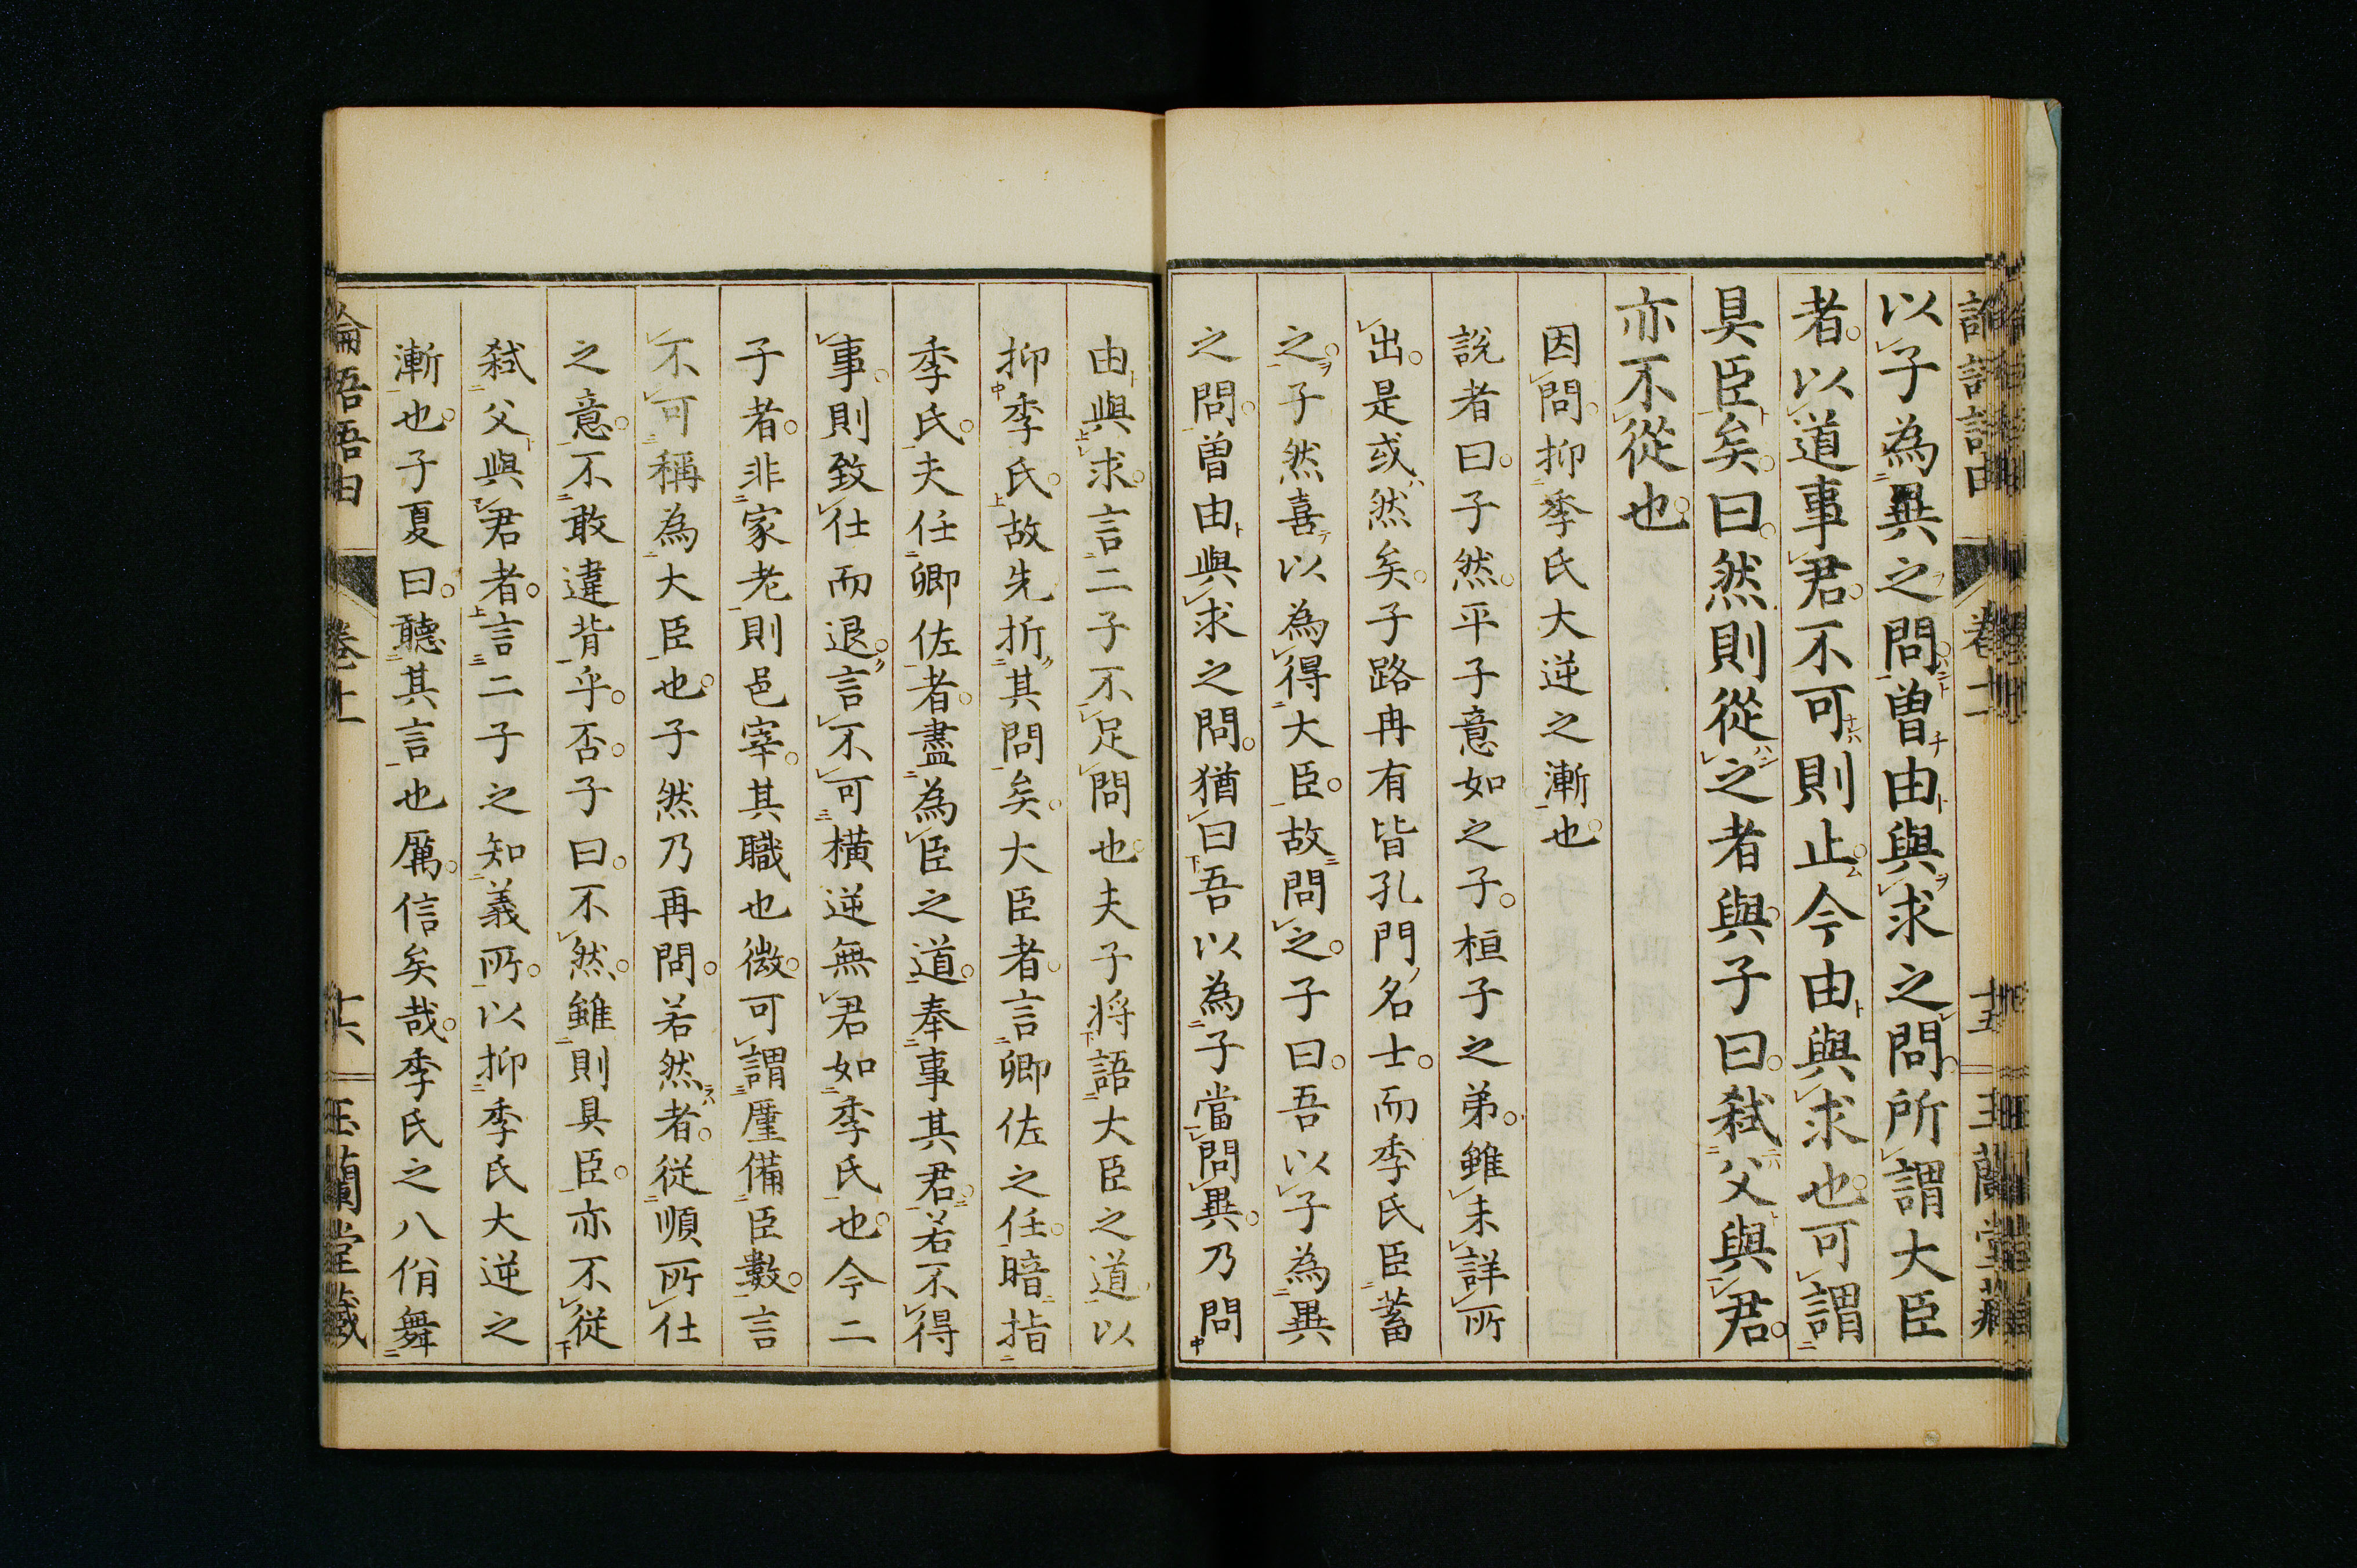 以子為異之問曽由與求之問所謂大臣
者以道事君不可則止今由與求也可謂
具臣矣曰然則從之者與子曰弑父與君
亦不從也
因問抑季氏大逆之漸也
說者曰子然平子意如之子桓子之弟雖未詳所
出是或然矣子路冉有皆孔門名士而季氏臣蓄
之子然喜以為得大臣故問之子曰吾以子為異
之問曽由與求之問猶曰吾以為子當問異乃問
由與求言二子不足問也夫子将語大臣之道以
抑季氏故先折其問矣大臣者言卿佐之任暗指
季氏夫任卿佐者盡為臣之道奉事其君若不得
事則致仕而退言不可橫逆無君如季氏也今二
子者非家老則邑宰其職也微可謂厪備臣數言
不可稱為大臣也子然乃再問若然者従順所仕
之意不敢違背乎否子曰不然雖則具臣亦不従
弑父與君者言二子之知義所以抑季氏大逆之
漸也子夏曰聽其言也厲信矣哉季氏之八佾舞
十六
玉蘭堂藏